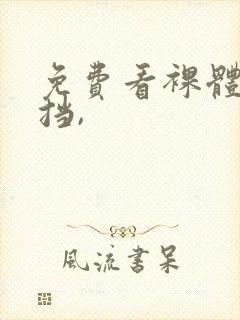 免費看裸體
挡,
風流書呆